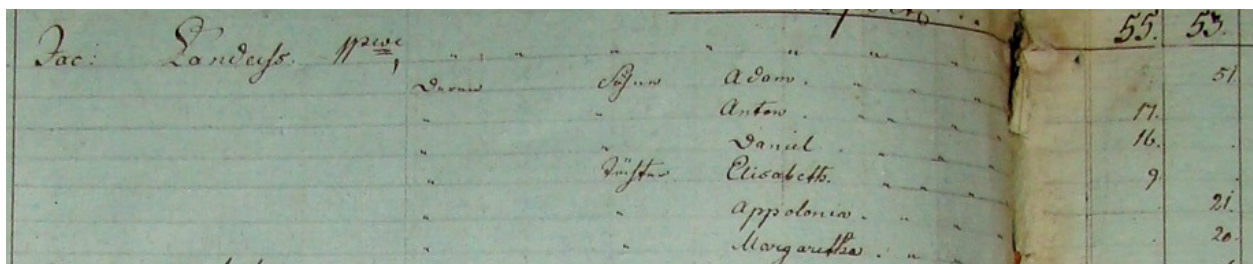 55. 53.
Jac: Landeiß. „ „ „ „ „ „ 51.
Deren Söhne Adam. „ „ „ 17.
„ „ Anton. „ „ „ 16.
„ „ Daniel. „ „ „ 9.
„ Töchter Elisabeth. „ „ „ 21.
„ „ Appolonia. „ „ „ 20.
„ „ Margaretha. „ „ „